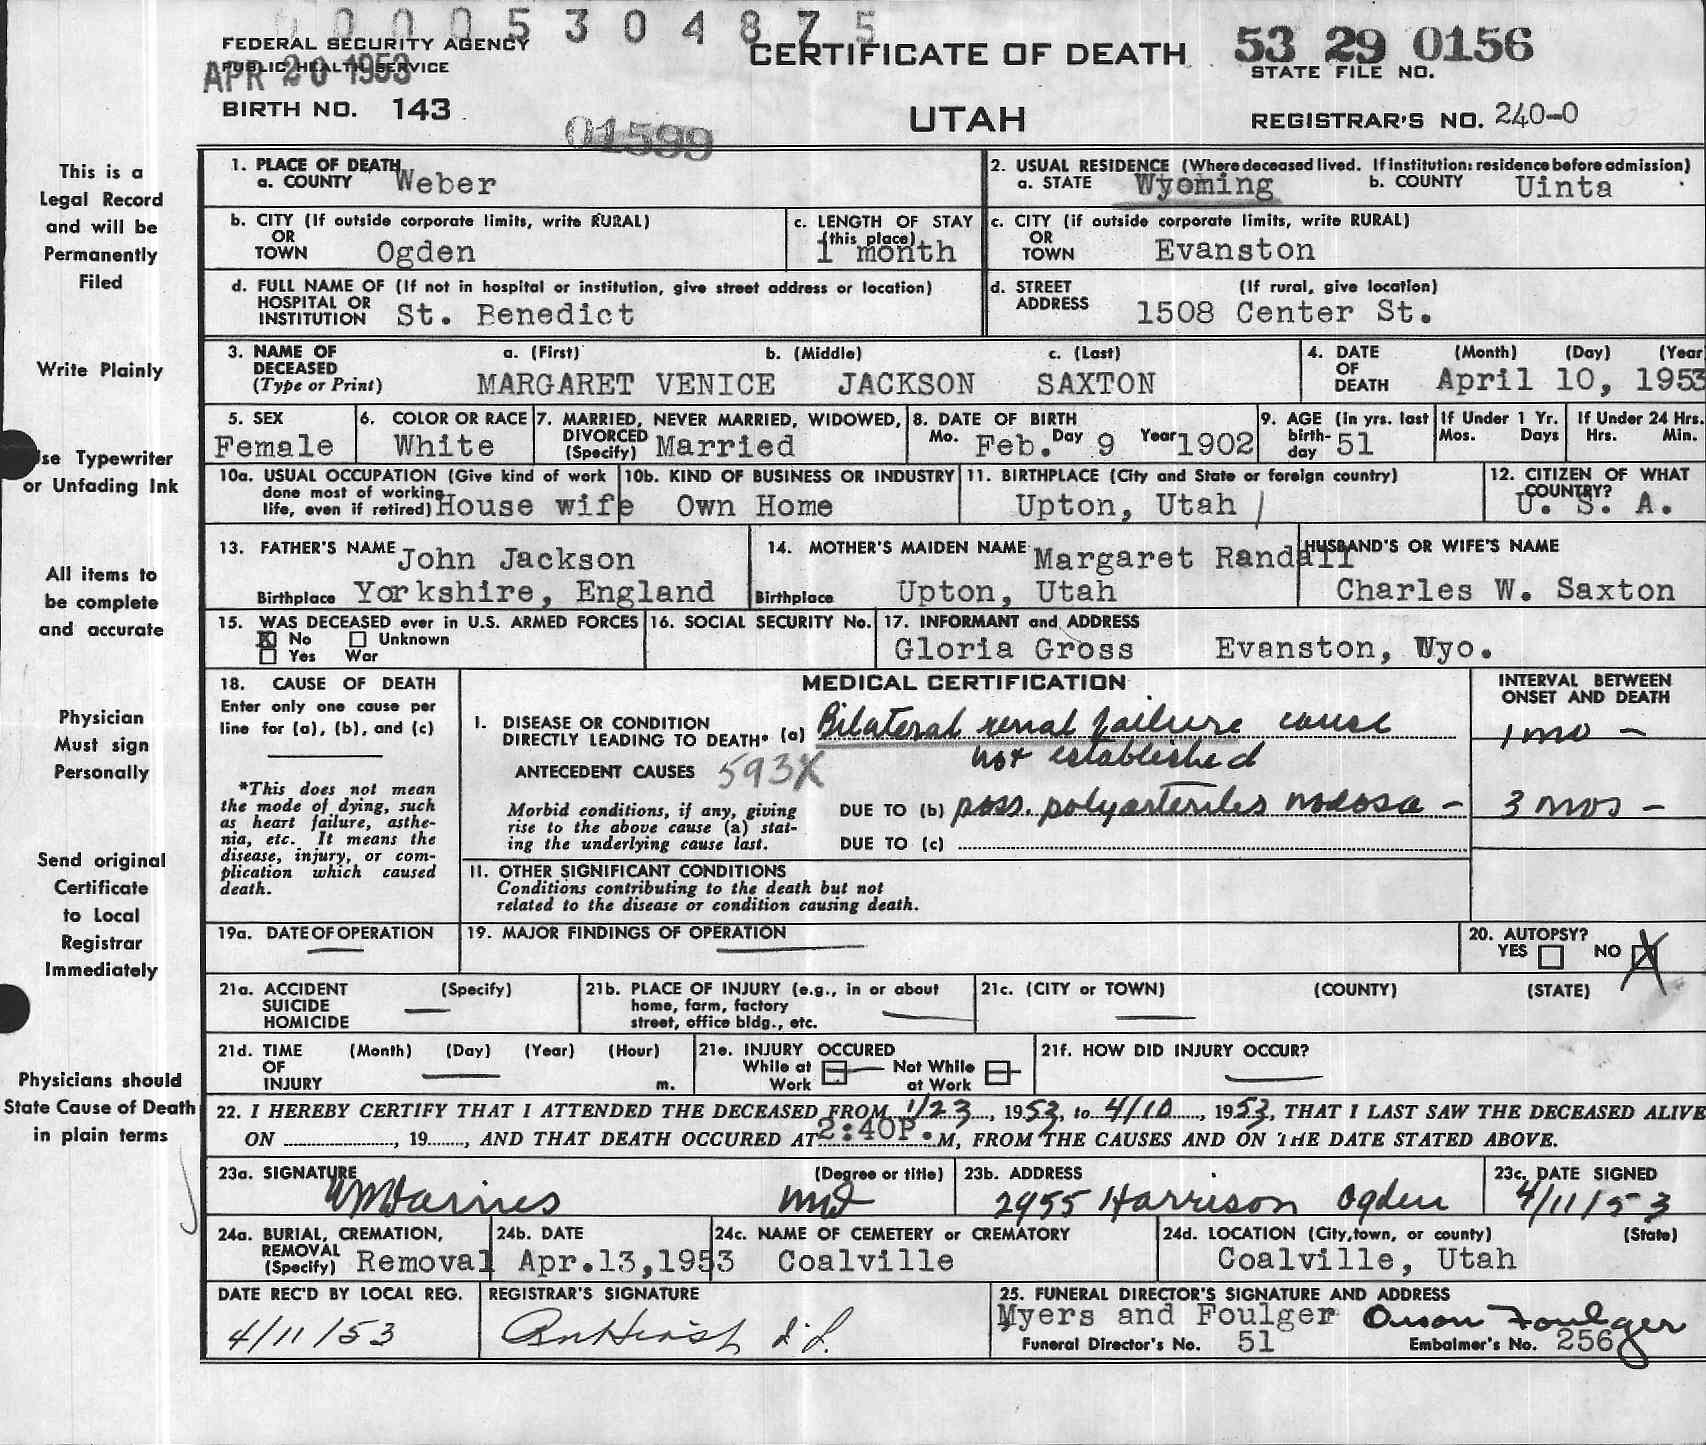 0005304875
FEDERAL SECURITY AGENCY
PUBLIC HEALTH SERVICE
APR 20 1953
CERTIFICATE OF DEATH
53 29 0156
STATE FILE NO.
BIRTH NO. 143
01599
UTAH
REGISTRAR'S NO. 240-0
This is a
Legal Record
and will be
Permanently
Filed
Write Plainly
Use Typewriter
or Unfading Ink
All items to
be complete
and accurate
Physician
Must sign
Personally
Send original
Certificate
to Local
Registrar
Immediately
Physicians should
State Cause of Death
in plain terms
1. PLACE OF DEATH
a. COUNTY Weber
2. USUAL RESIDENCE (Where deceased lived. If institution: residence before admission)
a. STATE Wyoming b. COUNTY Uinta
b. CITY (If outside corporate limits, write RURAL)
OR
TOWN Ogden
c. LENGTH OF STAY
(this place)
1 month
c. CITY (if outside corporate limits, write RURAL)
OR
TOWN Evanston
d. FULL NAME OF (If not in hospital or institution, give street address or location)
HOSPITAL OR
INSTITUTION St. Benedict
d. STREET (If rural, give location)
ADDRESS 1508 Center St.
3. NAME OF a. (First) b. (Middle) c. (Last)
DECEASED
(Type or Print) MARGARET VENICE JACKSON SAXTON
4. DATE (Month) (Day) (Year
OF
DEATH April 10, 1953
5. SEX
Female
6. COLOR OR RACE
White
7. MARRIED, NEVER MARRIED, WIDOWED,
DIVORCED
(Specify) Married
8. DATE OF BIRTH
Mo. Feb. Day 9 Year 1902
9. AGE (in yrs. last
birth-
day 51
If Under 1 Yr.
Mos. Days
If Under 24 Hrs.
Hrs. Min.
10a. USUAL OCCUPATION (Give kind of work
done most of working
life, even if retired) House wife
10b. KIND OF BUSINESS OR INDUSTRY
Own Home
11. BIRTHPLACE (City and State or foreign country)
Upton, Utah
12. CITIZEN OF WHAT
COUNTRY?
U. S. A.
13. FATHER'S NAME John Jackson
Birthplace Yorkshire, England
14. MOTHER'S MAIDEN NAME Margaret Randall
Birthplace Upton, Utah
HUSBAND'S OR WIFE'S NAME
Charles W. Saxton
15. WAS DECEASED ever in U.S. ARMED FORCES
No Unknown
Yes War
16. SOCIAL SECURITY No.
17. INFORMANT and ADDRESS
Gloria Gross Evanston, Wyo.
18. CAUSE OF DEATH
Enter only one cause per
line for (a), (b), and (c)
*This does not mean
the mode of dying, such
as heart failure, asthe-
nia, etc. It means the
disease, injury, or com-
plication which caused
death.
MEDICAL CERTIFICATION
INTERVAL BETWEEN
ONSET AND DEATH
I. DISEASE OR CONDITION
DIRECTLY LEADING TO DEATH* (a) Bilateral renal failure cause
not established
1 mo -
ANTECEDENT CAUSES 593X
Morbid conditions, if any, giving
rise to the above cause (a) stat-
ing the underlying cause last.
DUE TO (b) poss. polyarterites nodosa - 3 mos -
DUE TO (c)
II. OTHER SIGNIFICANT CONDITIONS
Conditions contributing to the death but not
related to the disease or condition causing death.
19a. DATE OF OPERATION
19. MAJOR FINDINGS OF OPERATION
20. AUTOPSY?
YES NO X
21a. ACCIDENT (Specify)
SUICIDE
HOMICIDE
21b. PLACE OF INJURY (e.g., in or about
home, farm, factory
street, office bldg., etc.
21c. (CITY or TOWN) (COUNTY) (STATE)
21d. TIME (Month) (Day) (Year) (Hour)
OF
INJURY m.
21e. INJURY OCCURED
While at Not While
Work at Work
21f. HOW DID INJURY OCCUR?
22. I HEREBY CERTIFY THAT I ATTENDED THE DECEASED FROM 1/23, 1953, to 4/10, 1953, THAT I LAST SAW THE DECEASED ALIVE
ON , 19 , AND THAT DEATH OCCURED AT 2:40P.M, FROM THE CAUSES AND ON THE DATE STATED ABOVE.
23a. SIGNATURE (Degree or title)
WMHaines MD
23b. ADDRESS
2955 Harrison Ogden
23c. DATE SIGNED
4/11/53
24a. BURIAL, CREMATION,
REMOVAL
(Specify) Removal
24b. DATE
Apr.13,1953
24c. NAME OF CEMETERY or CREMATORY
Coalville
24d. LOCATION (City, town, or county) (State)
Coalville, Utah
DATE REC'D BY LOCAL REG.
4/11/53
REGISTRAR'S SIGNATURE
25. FUNERAL DIRECTOR'S SIGNATURE AND ADDRESS
Myers and Foulger Orson Foulger
Funeral Director's No. 51 Embalmer's No. 256